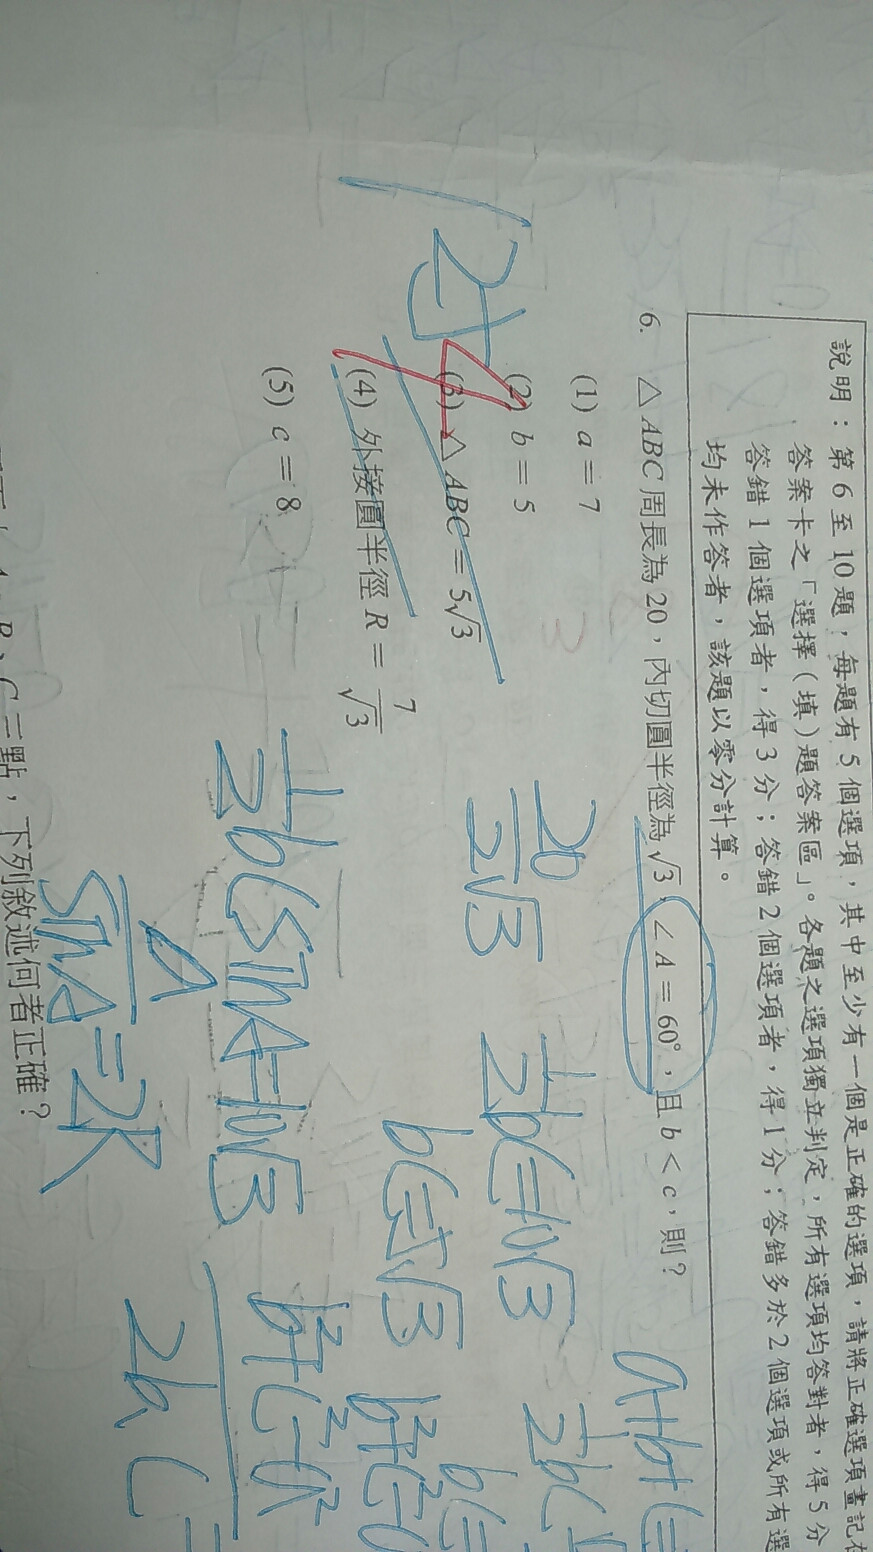 說明：第 6 至 10 題，每題有 5 個選項，其中至少有一個是正確的選項，請將正確選項畫記在
答案卡之「選擇（填）題答案區」。各題之選項獨立判定，所有選項均答對者，得 5 分
答錯 1 個選項者，得 3 分；答錯 2 個選項者，得 1 分；答錯多於 2 個選項或所有選
均未作答者，該題以零分計算。
6. △ABC 周長為 20，內切圓半徑為 √3，∠A = 60°，且 b < c，則？
(1) a = 7
(2) b = 5
(3) △ABC = 5√3
(4) 外接圓半徑 R = 7/√3
(5) c = 8
20/2 √3
1/2 bc = 10√3
bc = √3
1/2 bc sinA = 10√3
a/sinA = 2R
a+b+c=
b²+c²-a²
2bc
B、C 三點，下列敘述何者正確？